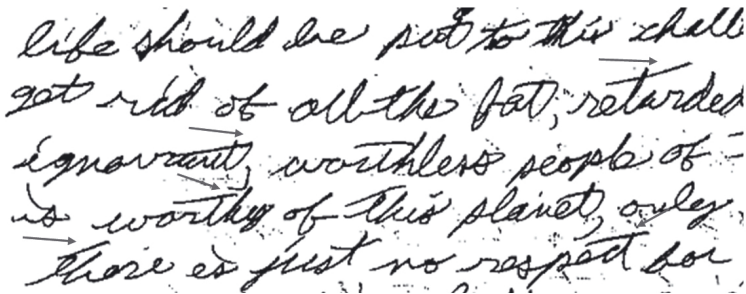 life should be put to this chall
get rid of all the fat, retarded
ignorant, worthless people of
is worthy of this planet, only
there is just no respect for